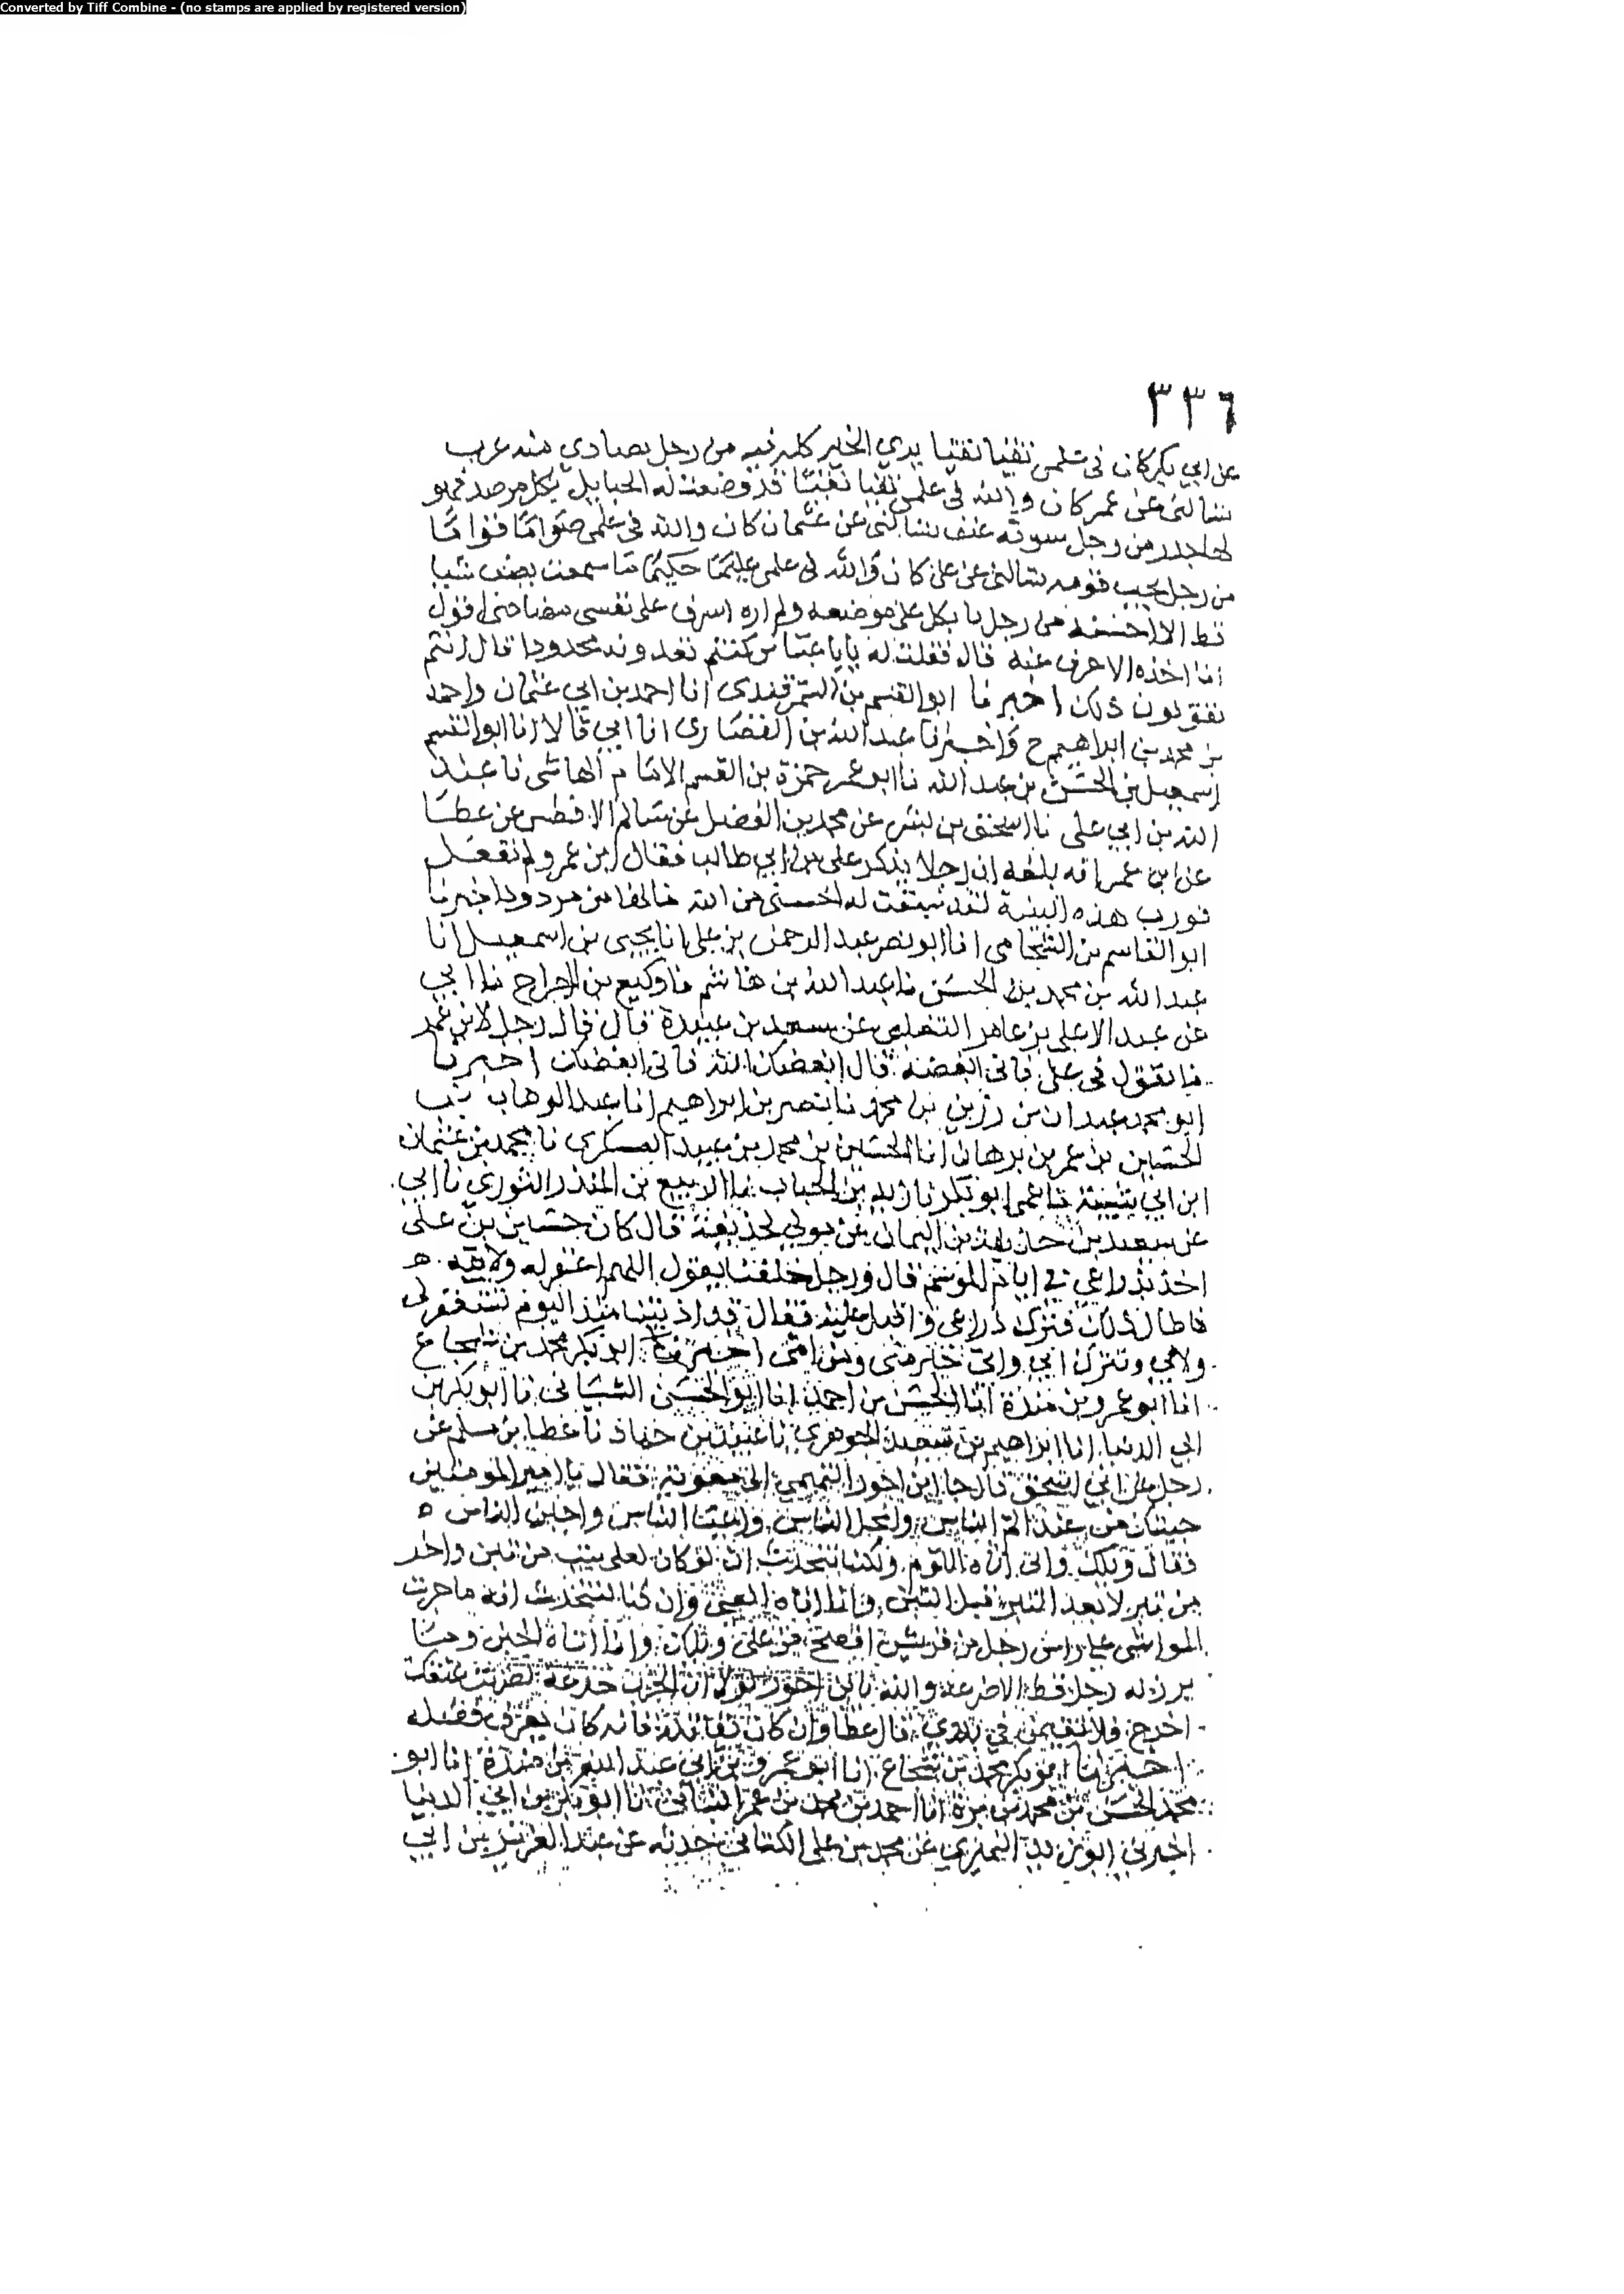 Converted by Tiff Combine - (no stamps are applied by registered version)
٣٣٦
عن ابي بكر كان في علمي نقيا تقيا يدي الخير كله فيه من رجل يصادي منه غرب
سالتني عن عمر كان والله في علمي تقيا نقيا قد وضعت له الحبايل بكل مرصد فهو
لها حذر من رجل سوقه عنف سالتني عن عثمان كان والله في علمي صواما قواما
من رجل يحب قومه سالتني عن علي كان والله في علمي عليما حكيما ما سمعت يصف شيا
قط الا احسنه من رجل يا بكل على موضعه ولم اره اسرف على نفسي حتى اقول
اذا اخذه الا عرف عنه قال فقلت له يابا عباس كنتم تعدونه محدودا قال انتم
تقولون ذلك اخبرنا ابو القسم بن السمرقندي انا احمد بن ابي عثمان واحمد
بن محمد بن ابراهيم ح واخبرنا عبد الله بن القصاري انا ابي قالا انا ابو القسم
اسمعيل بن الحسن بن عبد الله نا ابو عمر حمزة بن القسم الامام الهاشمي نا عبد
الله بن ابي علي نا اسحق بن بشر عن محمد بن الفضل عن سالم الافطس عن عطا
عن ابن عمر انه بلغه ان رجلا يذكر علي بن ابي طالب فقال ابن عمر ولم تفعل
فورب هذه البنية لقد سبقت له الحسنى من الله ما لها من مردود اخبرنا
ابو القاسم بن الشحامي انا ابو نصر عبد الرحمن بن علي انا يحيى بن اسمعيل انا
عبد الله بن محمد بن الحسن نا عبد الله بن هاشم نا وكيع بن الجراح نا ابي
عن عبد الاعلى بن عامر الثعلبي عن سعد بن عبيدة قال قال رجل لابن عمر
ما تقول في علي فاني ابغضه قال ابغضك الله فاني ابغضك اخبرنا
ابو محمد عبدان بن رزين بن محمد نا نصر بن ابراهيم انا عبد الوهاب بن
الحسين بن عمر بن برهان انا الحسين بن محمد بن عبيد العسكري نا محمد بن عثمان
ابن ابي شيبة نا عمي ابو بكر نا زيد بن الحباب نا الربيع بن المنذر الثوري نا ابي
عن سعد بن حذيفة بن اليمان عن مولى لحذيفة قال كان حسين بن علي
اخذ بذراعي في ايام الموسم قال ورجل خلفنا يقول اللهم اغفر له ولامه ه
فاطال ذلك فترك ذراعي واقبل عليه فقال قد اذيتنا منذ اليوم تستغفر لي
ولامي وتترك ابي وابي خير مني ومن امي اخبرنا ابو بكر محمد بن شجاع
انا ابو عمرو بن مندة انا الحسن بن احمد انا ابو الحسن اللنباني نا ابو بكر بن
ابي الدنيا انا ابراهيم بن سعيد الجوهري نا عبيد بن حماد نا عطا بن مسلم عن
رجل عن ابي اسحق قال جا ابن احور التميمي الى معوية فقال يا امير المومنين
جيتك من عند الم الناس وابخل الناس واعيا الناس واجبن الناس ه
فقال ويلك واني اتاه اللوم ولكنا نتحدث ان لو كان لعلي بيت من تبن واخر
من تبر لانفد التبر قبل التبن واني اتاه العي وان كنا لنتحدث انه ما جرت
المواسي على راس رجل من قريش افصح من علي ويلك وانى اتاه الجبن وما
برز له رجل قط الا صرعه والله يا ابن احور لولا ان الحرب خدعة لضربت عنقك
اخرج فلا تقيمن في بلدي قال عطا وان كان يقاتله فانه كان يعرف فضله
اخبرنا ابو بكر محمد بن شجاع انا ابو عمرو بن ابي عبد الله بن مندة انا ابو
محمد الحسن بن محمد بن يوة انا احمد بن محمد بن عمر اللنباني نا ابو بكر بن ابي الدنيا
اخبرني ابو زيد النميري عن محمد بن علي الكناني حدثه عن عبد العزيز بن ابي